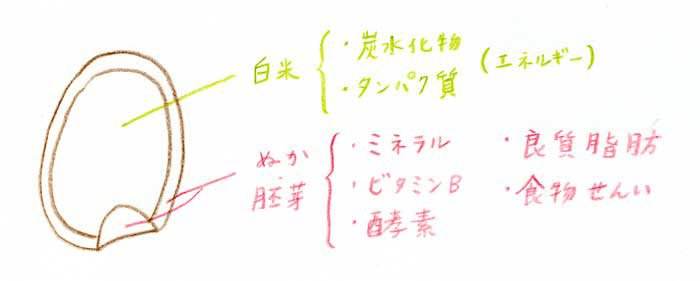 白米
・炭水化物
・タンパク質
(エネルギー)
ぬか
胚芽
・ミネラル
・ビタミンB
・酵素
・良質脂肪
・食物せんい